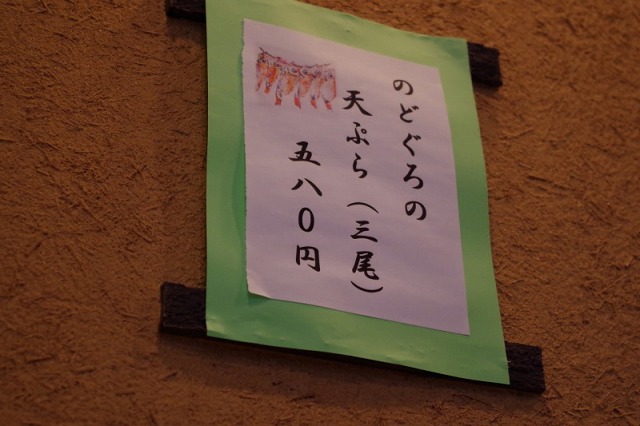 のどぐろの
天ぷら（三尾）
五八０円